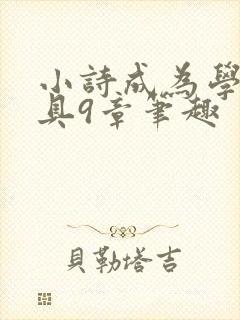 小詩成為學
具9章筆趣
貝勒塔吉